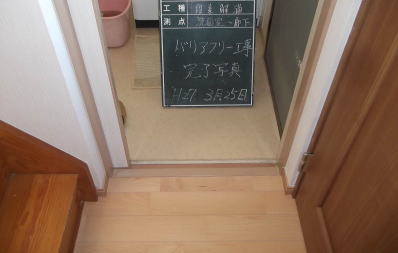 工種 段差解消
測点 洗面室～廊下
バリアフリー工事
完了写真
H27 3月25日